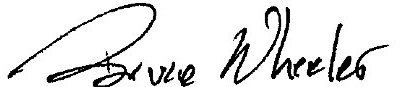 Bruce Wheeler